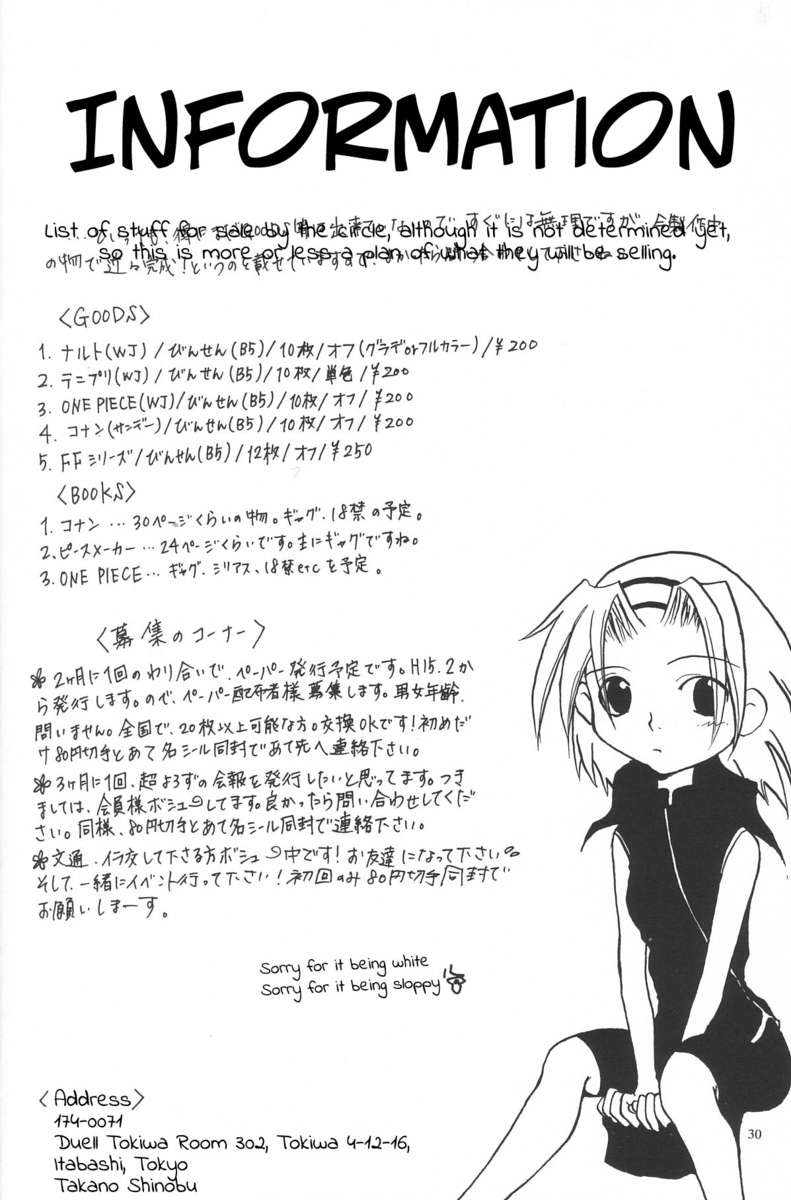 INFORMATION
List of stuff for sale by the circle, although it is not determined yet,
so this is more or less a plan of what they will be selling.
<GOODS>
1. ナルト(WJ)/びんせん(B5)/10枚/オフ(グラデorフルカラー)/¥200
2. テニプリ(WJ)/びんせん(B5)/10枚/単色/¥200
3. ONE PIECE(WJ)/びんせん(B5)/10枚/オフ/¥200
4. コナン(サンデー)/びんせん(B5)/10枚/オフ/¥200
5. FFシリーズ/びんせん(B5)/12枚/オフ/¥250
<BOOKS>
1. コナン…30ページくらいの物。ギャグ、18禁の予定。
2. ピースメーカー…24ページくらいです。主にギャグですね。
3. ONE PIECE…ギャグ、シリアス、18禁etcを予定。
<募集のコーナー>
2ヶ月に1回のわり合いで、ペーパー発行予定です。H15.2か
ら発行します。ので、ペーパー配布者様募集します。男女年齢
問いません。全国で、20枚以上可能な方。交換OKです!初めだ
け80円切手とあて名シール同封であて先へ連絡下さい。
3ヶ月に1回、超よろずの会報を発行したいと思ってます。つき
ましては、会員様ボシューしてます。良かったら問い合わせしてくだ
さい。同様、80円切手とあて名シール同封で連絡下さい。
文通、イラ交して下さる方ボシュー中です!お友達になって下さい
そして、一緒にイベント行って下さい!初回のみ80円切手同封で
お願いしまーす。
Sorry for it being white
Sorry for it being sloppy
<Address>
174-0071
Duell Tokiwa Room 302, Tokiwa 4-12-16,
Itabashi, Tokyo
Takano Shinobu
30